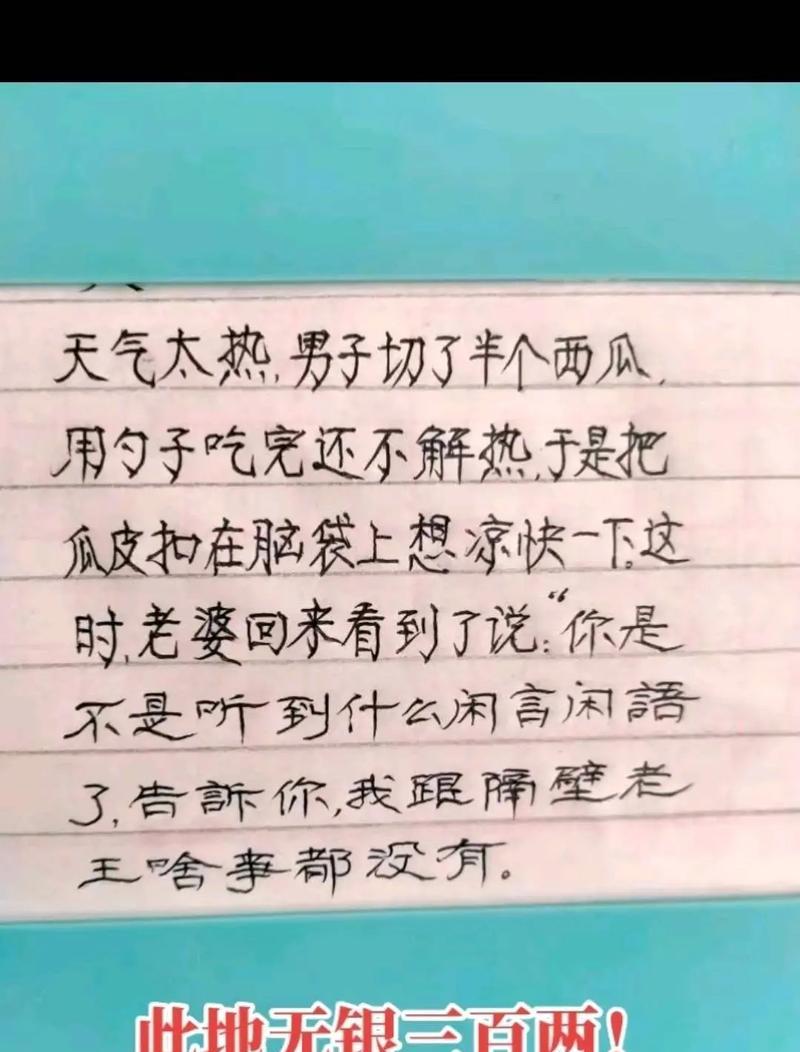 天气太热,男子切了半个西瓜,
用勺子吃完还不解热,于是把
瓜皮扣在脑袋上想凉快一下。这
时,老婆回来看到了说:“你是
不是听到什么闲言闲語
了,告訴你,我跟隔壁老
王啥事都没有。
此地无银三百两!